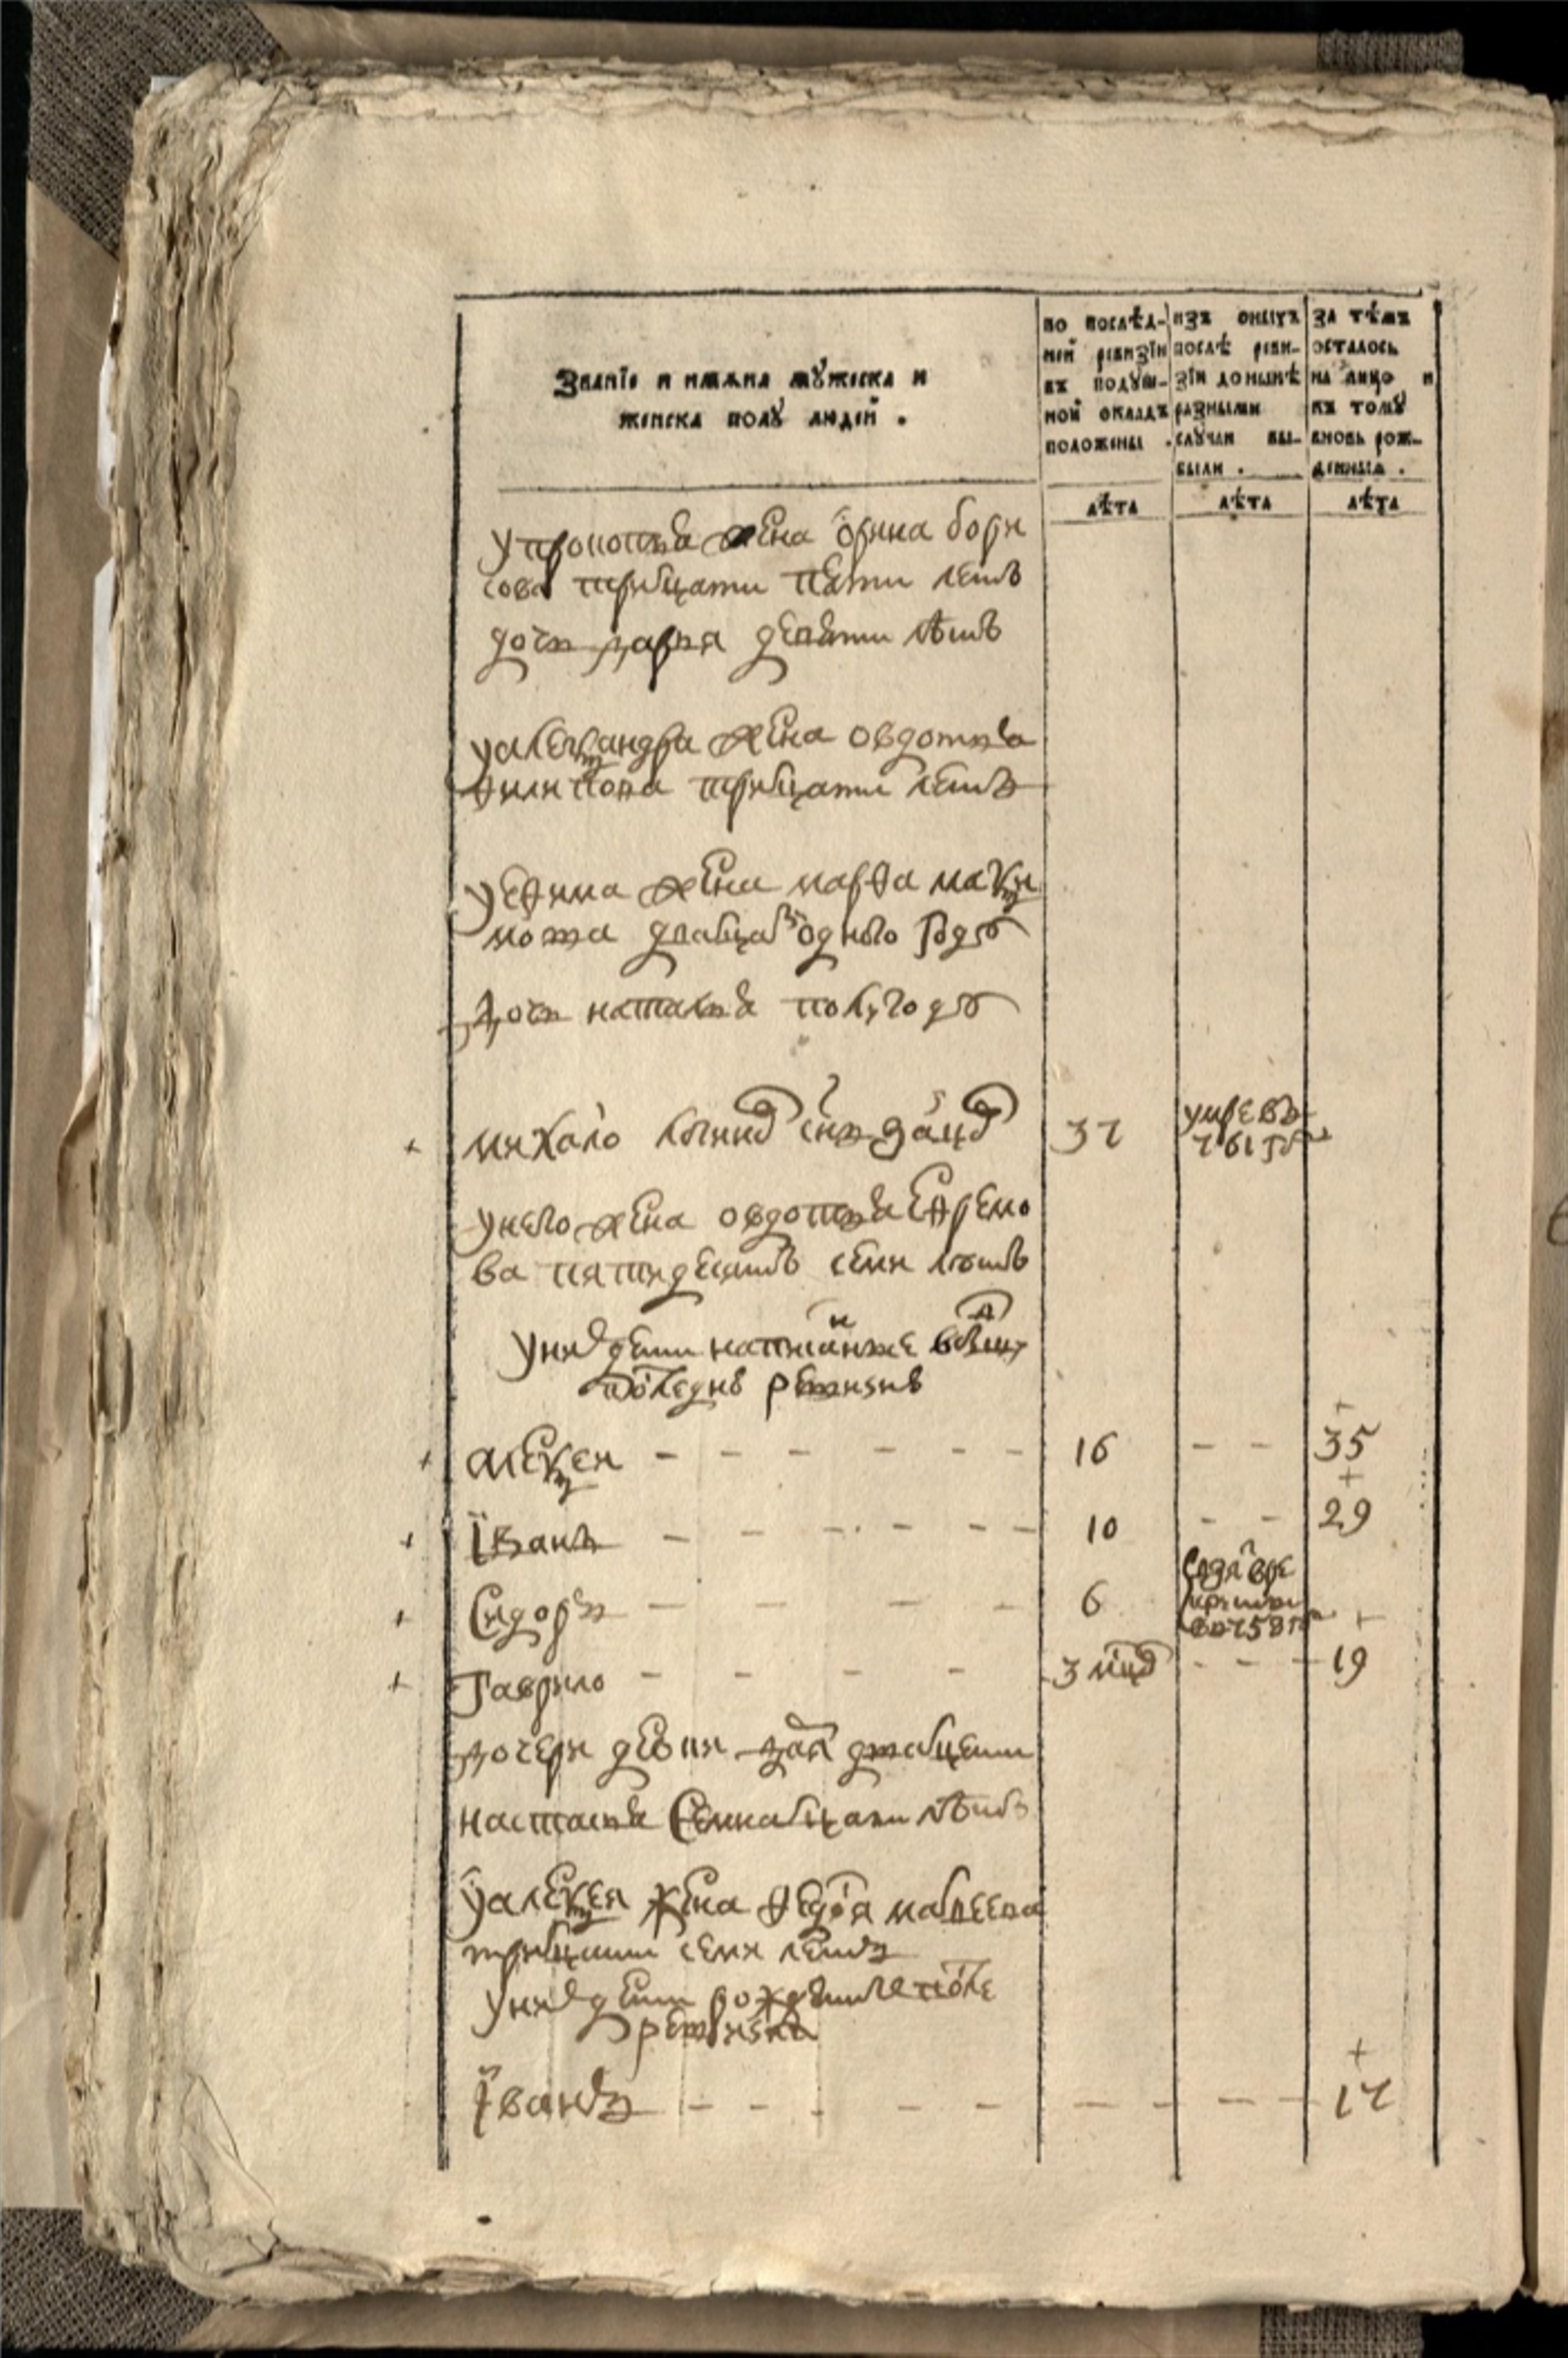 Званїе и имѧна мꙋжеска и
женска полꙋ людей .
по послѣд-
ней ревизїи
въ подꙋш-
ной окладъ
положены .
изъ оныхъ
послѣ реви-
зїи до нынѣ
разными
слꙋчаи вы-
были .
за тѣмъ
осталось
на лицо и
къ томꙋ
вновь рож-
денныхъ .
лѣта
лѣта
лѣта
у прокопья жена орина бори
сова трицати пяти летъ
дочь дарья девяти лѣтъ
у александра жена овдотья
филипова трицати летъ
у ефима жена марфа макси
мова двацат одного году
дочь наталья полугоду
михайло сынъ 37 умре въ
761 году
у него жена овдотья ефремо
ва пятидесятъ семи летъ
у них дети написанные
последней ревизии
алексей - - - - - - 16 - - 35
їванъ - - - - - - 10 - - 29
Сидоръ - - - - 6
въ 758 г
гаврило - - - - 3 нед - - - 19
дочери девки
настасья семнацати лѣтъ
у алексея жена федося матвеева
трицати семи летъ
у них дети рожденные после
ревизии
їванъ - - - - - - - - - 17